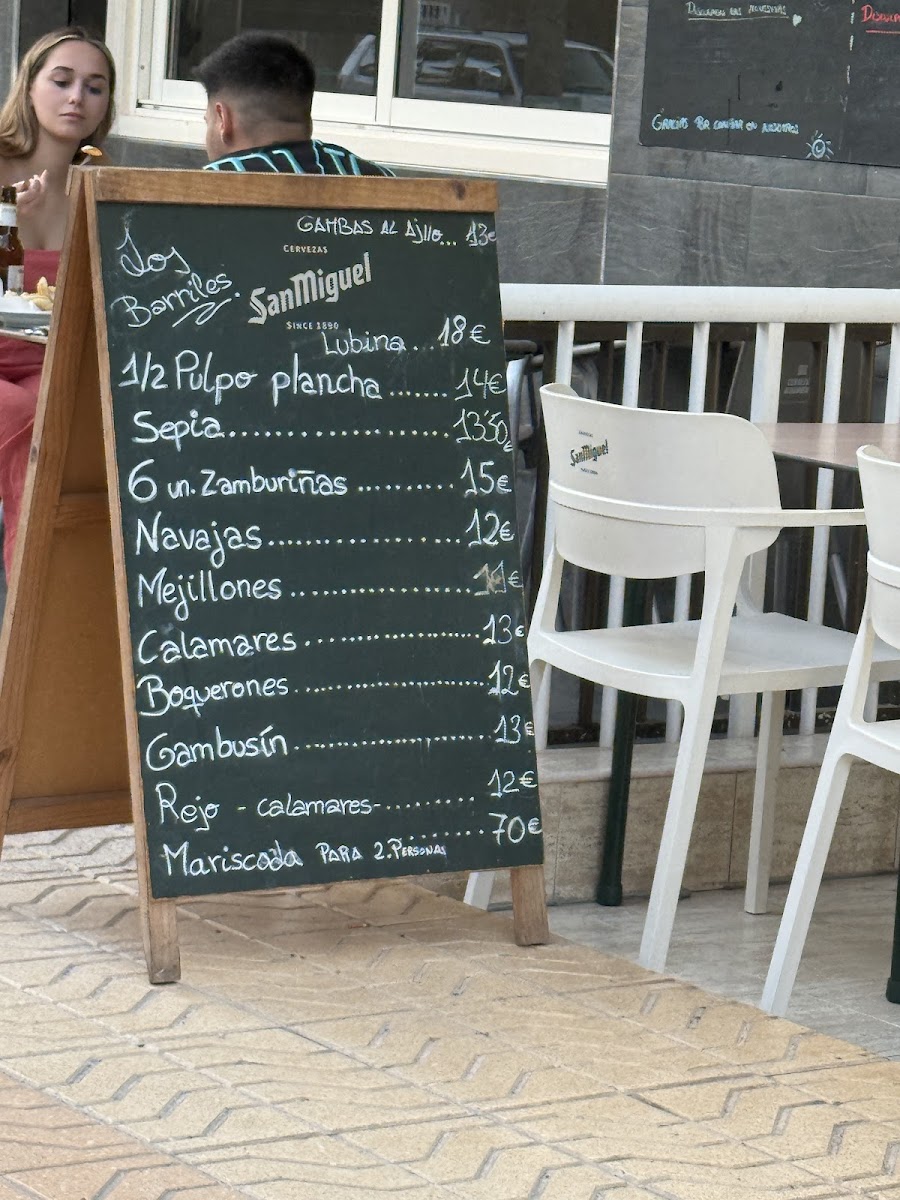 GAMBAS AL AJIIO... 13€
Los
Barriles
CERVEZAS
SanMiguel
SINCE 1890
Lubina... 18€
1/2 Pulpo plancha ....... 14€
Sepia.................... 13'50€
6 un. Zamburiñas ......... 15€
Navajas.................. 12€
Mejillones .................. 11€
Calamares .................. 13€
Boquerones .................. 12€
Gambusín .................. 13€
Rejo - calamares-......... 12€
Mariscada PARA 2. PERSONAS ....... 70€
SanMiguel
GRACIAS POR CONFIAR EN NOSOTROS